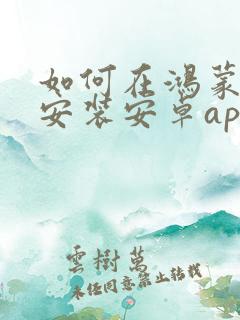 如何在鸿蒙
安装安卓ap
雲樹萬
未经同意禁止转载